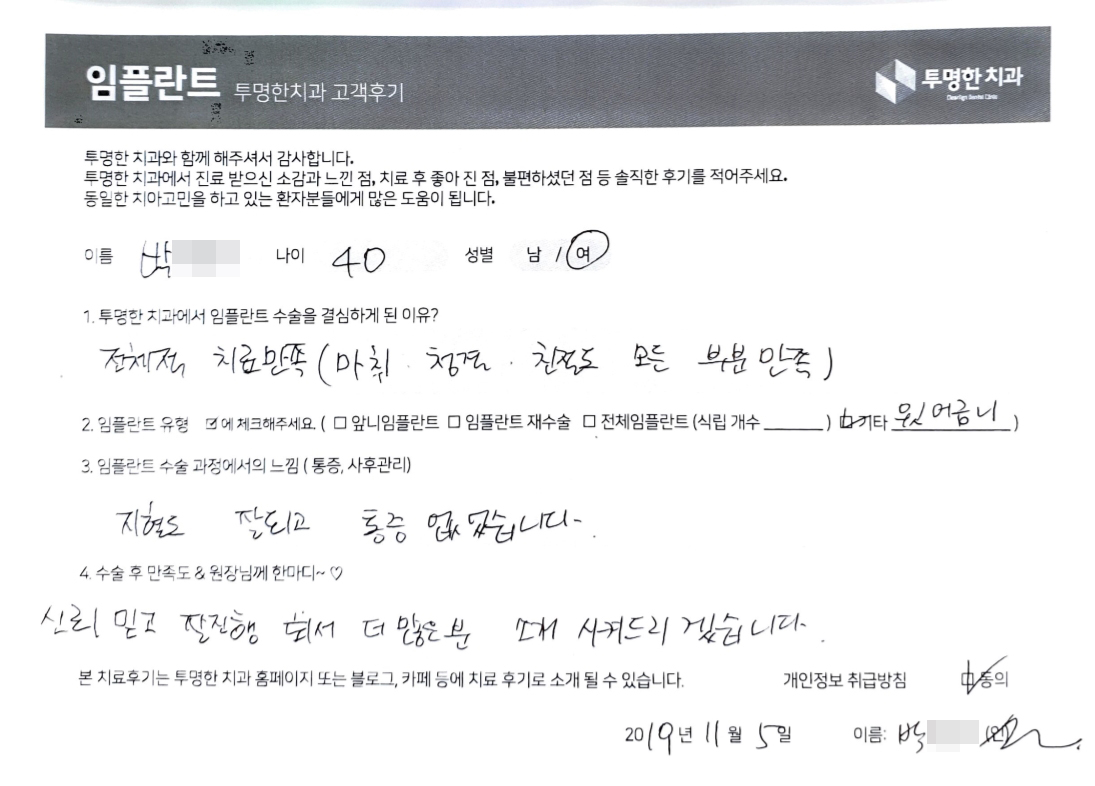 임플란트 투명한치과 고객후기
투명한 치과
투명한 치과와 함께 해주셔서 감사합니다.
투명한 치과에서 진료 받으신 소감과 느낀 점, 치료 후 좋아 진 점, 불편하셨던 점 등 솔직한 후기를 적어주세요.
동일한 치아고민을 하고 있는 환자분들에게 많은 도움이 됩니다.
이름 박 나이 40 성별 남 / 여
1. 투명한 치과에서 임플란트 수술을 결심하게 된 이유?
전체적 치료만족 (마취 · 청결 · 친절도 모든 부분 만족)
2. 임플란트 유형 ☑에 체크해주세요. ( □ 앞니임플란트 □ 임플란트 재수술 □ 전체임플란트 (식립 개수 ______ ) ☑ 기타 윗어금니 )
3. 임플란트 수술 과정에서의 느낌 ( 통증, 사후관리)
지혈도 잘되고 통증 없었습니다.
4. 수술 후 만족도 & 원장님께 한마디~ ♡
신뢰 믿고 잘진행 되서 더 많은분 소개 시켜드리겠습니다.
본 치료후기는 투명한 치과 홈페이지 또는 블로그, 카페 등에 치료 후기로 소개 될 수 있습니다. 개인정보 취급방침 ☑ 동의
2019년 11월 5일 이름: 박 (인)